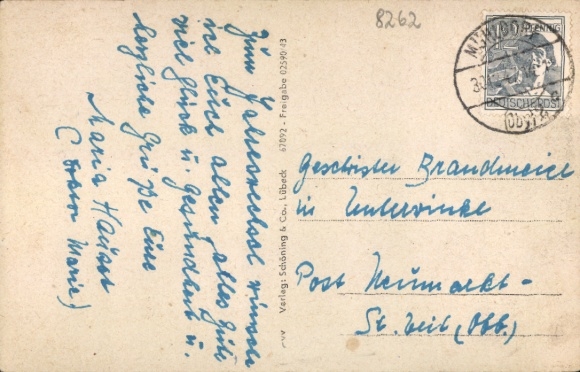 8262
Zum Jahreswechsel wünsche
ich Euch allen alles Gute
viel Glück u. Gesundheit u.
herzliche Grüße Eure
Maria Hauser
Marie)
Verlag: Schöning & Co., Lübeck 67092 - Freigabe 02590/43
PFENNIG
DEUTSCHE POST
Geschwister Brandmeier
in Untervinke
Post Neumarkt-
St. Veit (Obb.)